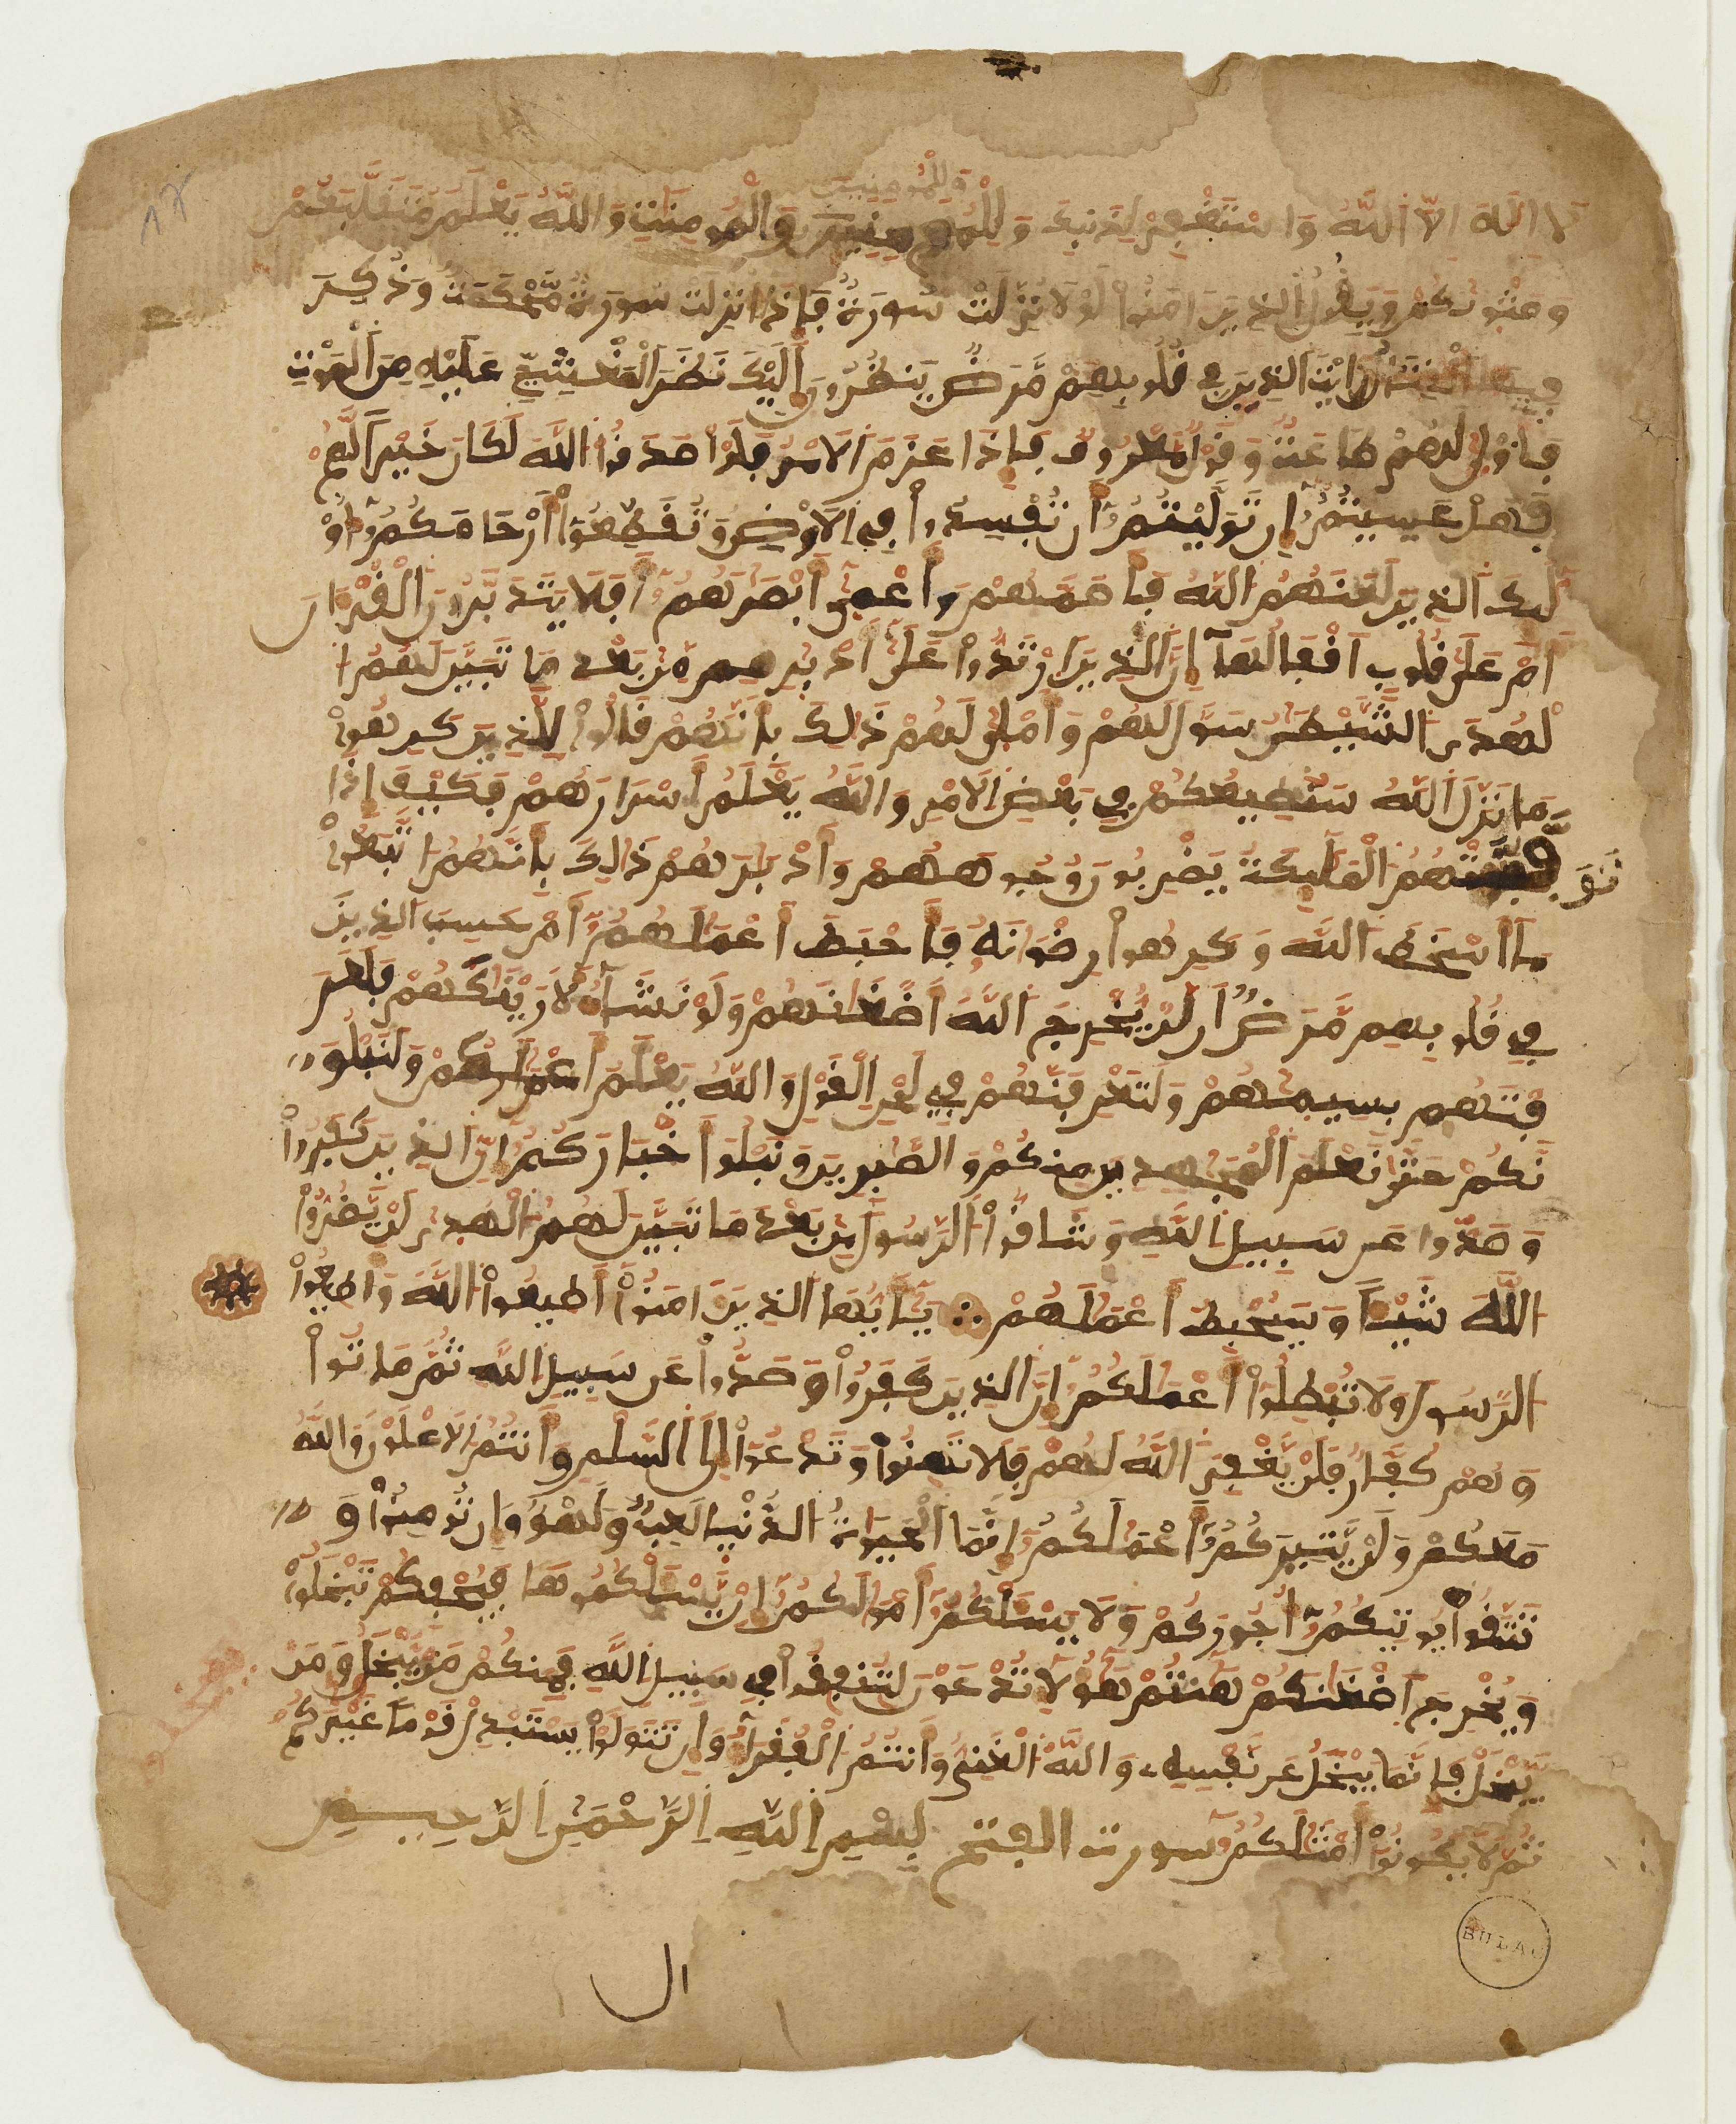 لا إله إلا الله واستغفر لذنبك وللمومنين والمومنت والله يعلم متقلبكم
وللمومنين
ومثويكم ويقول الذين امنوا لولا نزلت سورة فإذا أنزلت سورة محكمة وذكر
فيها القتال رأيت الذين في قلوبهم مرض ينظرون إليك نظر المغشي عليه من الموت
فأولى لهم طاعة وقول معروف فإذا عزم الامر فلو صدقوا الله لكان خيرا لهم
فهل عسيتم إن توليتم أن تفسدوا في الارض وتقطعوا أرحامكم أو
لئك الذين لعنهم الله فأصمهم وأعمى أبصرهم أفلا يتدبرون القرءان
أم على قلوب أقفالها إن الذين ارتدوا على أدبرهم من بعد ما تبين لهم ا
لهدى الشيطن سول لهم وأملى لهم ذلك بأنهم قالوا للذين كرهوا
ما نزل الله سنطيعكم في بعض الامر والله يعلم أسرارهم فكيف إذا
توفتهم الملئكة يضربون وجوههم وأدبرهم ذلك بأنهم اتبعوا
ما أسخط الله وكرهوا رضوانه فأحبط أعملهم أم حسب الذين
في قلوبهم مرض أن لن يخرج الله أضغنهم ولو نشاء لأرينكهم فلعر
فتهم بسيمهم ولتعرفنهم في لحن القول والله يعلم أعملكم ولنبلو
نكم حتى نعلم المجهدين منكم والصبرين ونبلوا أخباركم إن الذين كفروا
وصدوا عن سبيل الله وشاقوا الرسول من بعد ما تبين لهم الهدى لن يضروا
الله شيئا وسيحبط أعملهم يأيها الذين ءامنوا أطيعوا الله وأطيعوا
الرسول ولا تبطلوا أعملكم إن الذين كفروا وصدوا عن سبيل الله ثم ماتوا
وهم كفار فلن يغفر الله لهم فلا تهنوا وتدعوا إلى السلم وأنتم الاعلون والله
معكم ولن يتركم أعملكم إنما الحيوة الدنيا لعب ولهو وإن تومنوا و
تتقوا يوتكم أجوركم ولا يسئلكم أمولكم إن يسئلكموها فيحفكم تبخلوا
ويخرج أضغنكم هأنتم هؤلاء تدعون لتنفقوا في سبيل الله فمنكم من يبخل ومن
يبخل فإنما يبخل عن نفسه والله الغني وأنتم الفقراء وإن تتولوا يستبدل قوما غيركم
ثم لا يكونوا أمثلكم سورت الفتح بسم الله الرحمن الرحيم
ال
BULAC